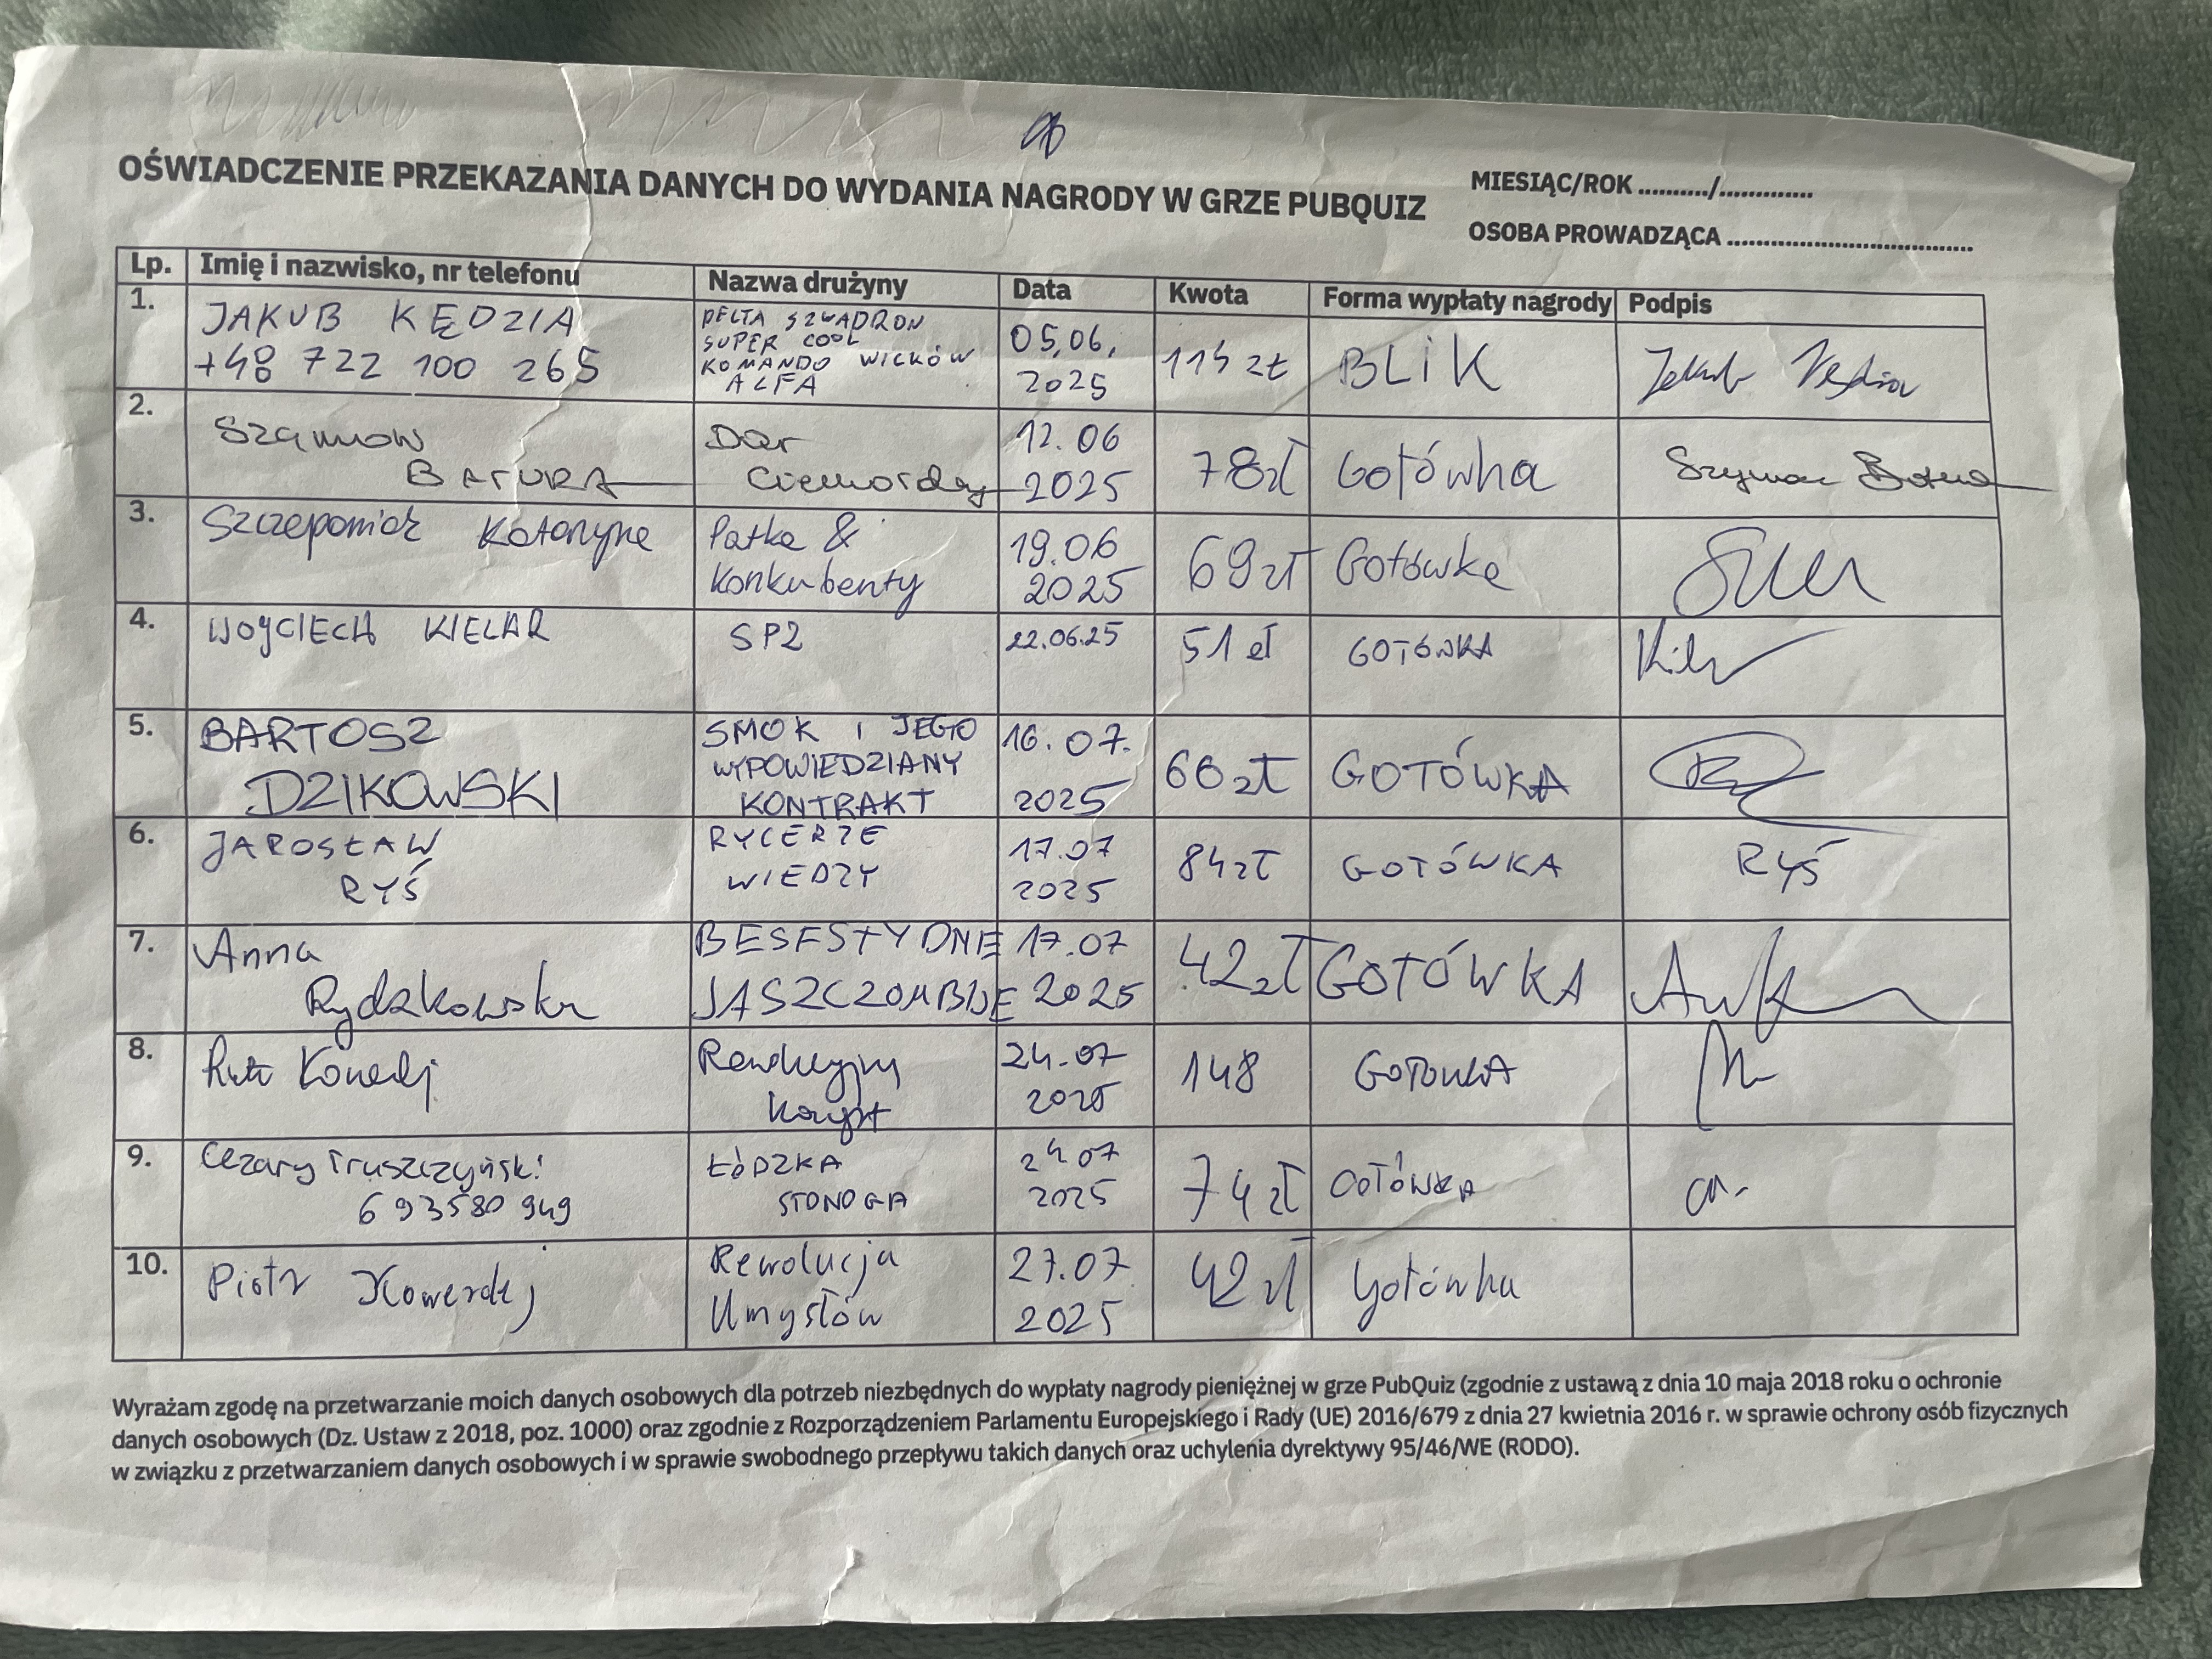 OŚWIADCZENIE PRZEKAZANIA DANYCH DO WYDANIA NAGRODY W GRZE PUBQUIZ
MIESIĄC/ROK ........../.............
OSOBA PROWADZĄCA ..................................
Lp. Imię i nazwisko, nr telefonu Nazwa drużyny Data Kwota Forma wypłaty nagrody Podpis
1.
JAKUB KĘDZIA
+48 722 100 265
DELTA SZWADRON
SUPER COOL
KOMANDO WILKÓW
ALFA
05.06.
2025
114 zł
BLIK
Jakub Kędzia
2.
Szymon
BATURA
Dar
Ciemordzy
12.06
2025
78zł
Gotówka
Szymon Batura
3.
Szczepaniak Katarzyna
Patka &
Konkubenty
19.06
2025
69zł
Gotówka
4.
WOJCIECH KIELAR
SP2
22.06.25
51 zł
GOTÓWKA
5.
BARTOSZ
DZIKOWSKI
SMOK I JEGO
WYPOWIEDZIANY
KONTRAKT
16.07.
2025
60zł
GOTÓWKA
6.
JAROSŁAW
RYŚ
RYCERZE
WIEDZY
17.07
2025
84zł
GOTÓWKA
RYŚ
7.
Anna
Rydzkowska
BESFSTYDNE
JASZCZOMBIJE
17.07
2025
42zł
GOTÓWKA
8.
24.07
2025
148
GOTOWKA
9.
Cezary Truszczyński
693580949
ŁÓDZKA
STONOGA
24 07
2025
74 zł
GOTÓWKA
10.
Piotr Kowerdej
Rewolucja
Umysłów
27.07
2025
42 zł
Gotówka
Wyrażam zgodę na przetwarzanie moich danych osobowych dla potrzeb niezbędnych do wypłaty nagrody pieniężnej w grze PubQuiz (zgodnie z ustawą z dnia 10 maja 2018 roku o ochronie
danych osobowych (Dz. Ustaw z 2018, poz. 1000) oraz zgodnie z Rozporządzeniem Parlamentu Europejskiego i Rady (UE) 2016/679 z dnia 27 kwietnia 2016 r. w sprawie ochrony osób fizycznych
w związku z przetwarzaniem danych osobowych i w sprawie swobodnego przepływu takich danych oraz uchylenia dyrektywy 95/46/WE (RODO).